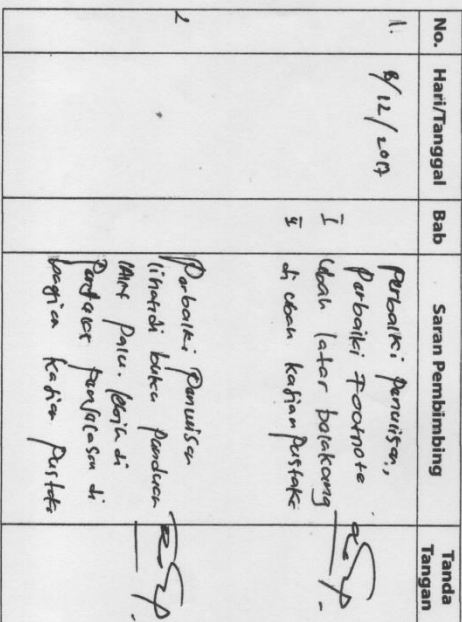 No. Hari/Tanggal Bab Saran Pembimbing Tanda Tangan
1. 8/12/2017 Perbaiki penulisan,
Perbaiki Footnote
I Ubah latar belakang
II di ubah kajian Pustaka
2 Perbaiki Penulisan
lihat di buku panduan
IAIN Palu. lebih di
Perjelas penjelasan di
bagian kajian Pustaka